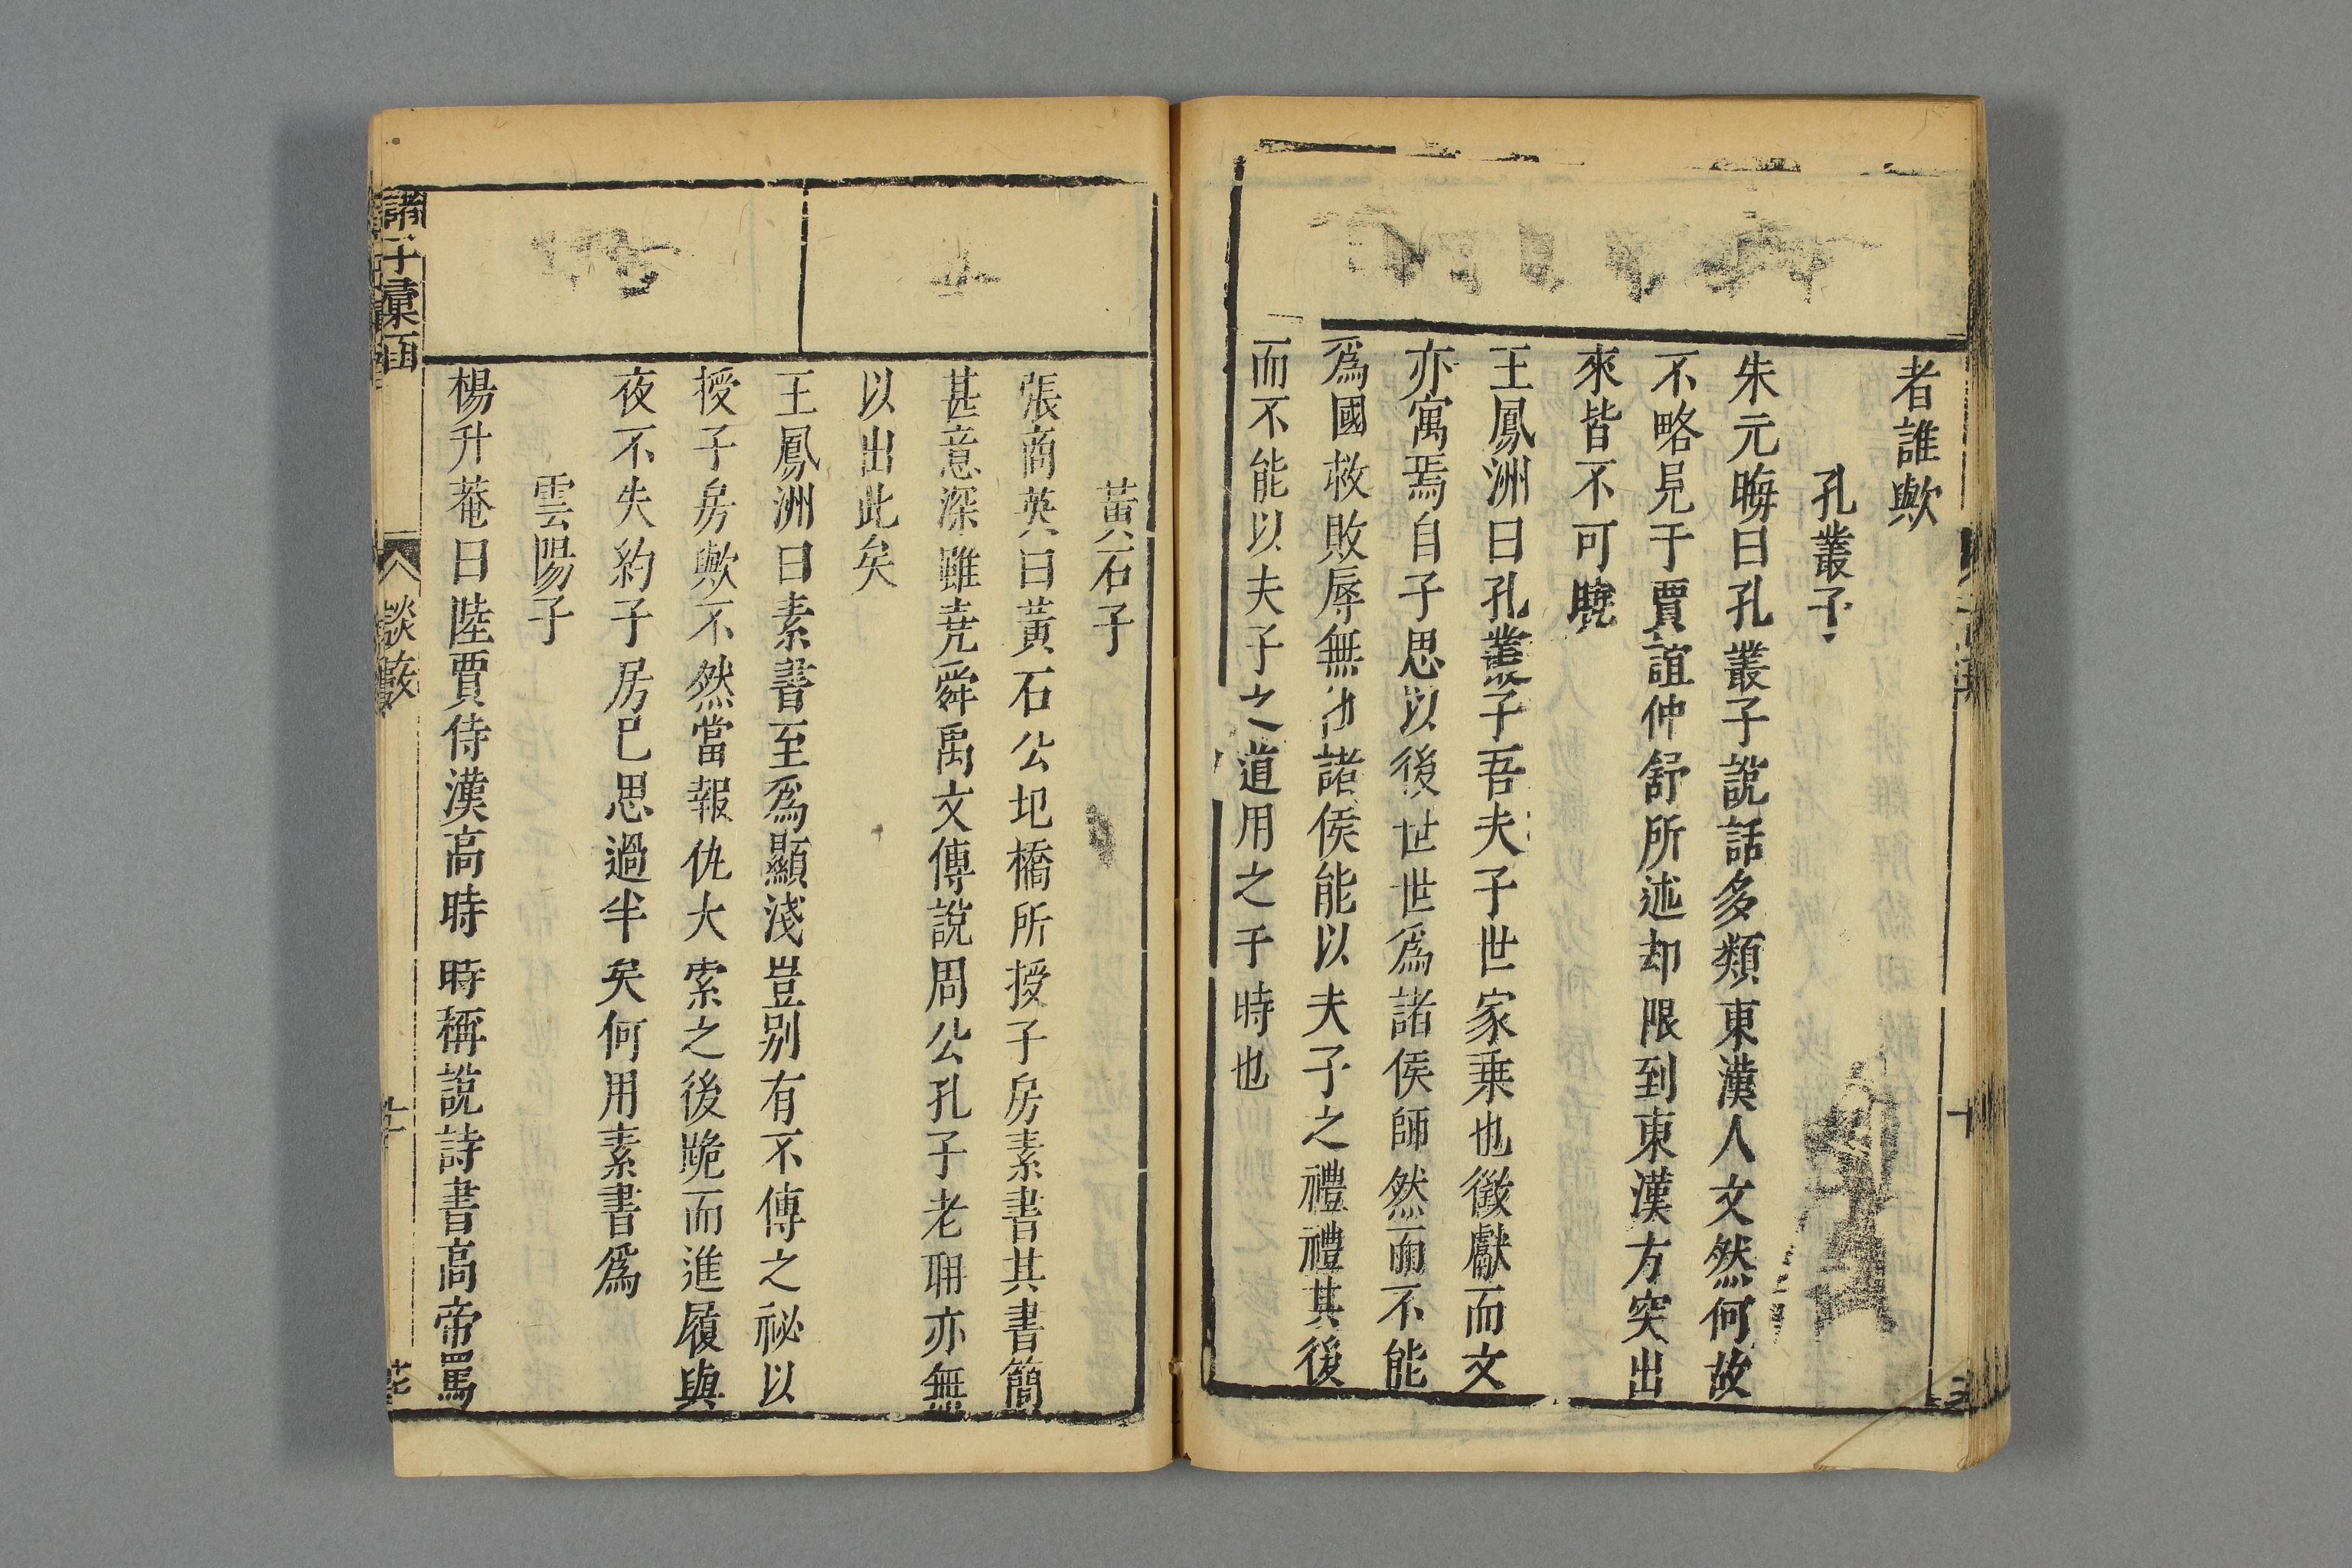 者誰歟
孔叢子
朱元晦曰孔叢子說話多類東漢人文然何故
不略見于賈誼仲舒所述却限到東漢方突出
來皆不可曉
王鳳洲曰孔叢子吾夫子世家乗也徵獻而文
亦寓焉自子思以後世世爲諸侯師然而不能
爲國救敗辱無諸侯能以夫子之禮禮其後
而不能以夫子之道用之于時也
黃石子
張商英曰黃石公圯橋所授子房素書其書簡
甚意深雖尭舜禹文傳說周公孔子老聃亦無
以出此矣
王鳳洲曰素書至爲顯淺豈别有不傳之祕以
授子房歟不然當報仇大索之後跪而進履與
夜不失約子房已思過半矣何用素書爲
雲陽子
楊升菴曰陸賈侍漢高時時稱說詩書高帝罵
諸子彙函
談藪